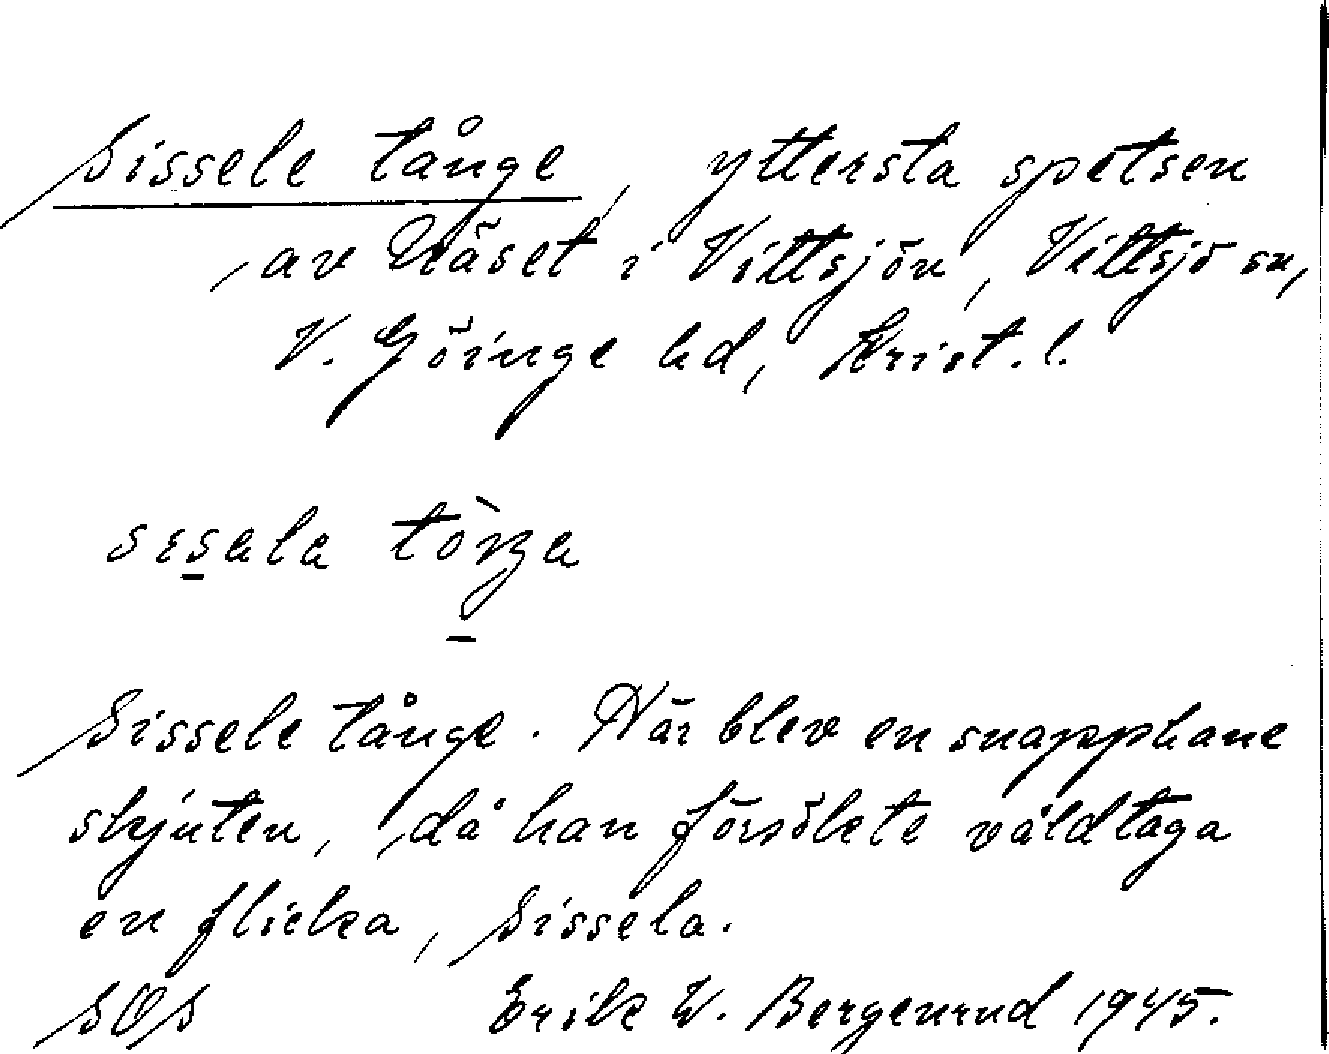 Sissele tånge, yttersta spetsen
av Näset i Vittsjön, Vittsjö sn,
V. Göinge hd, Krist. l.
Sissele tånge. Här blev en snapphane
skjuten, då han försökte våldtaga
en flicka, Sissela.
SOS Erik W. Bergenrud 1945.